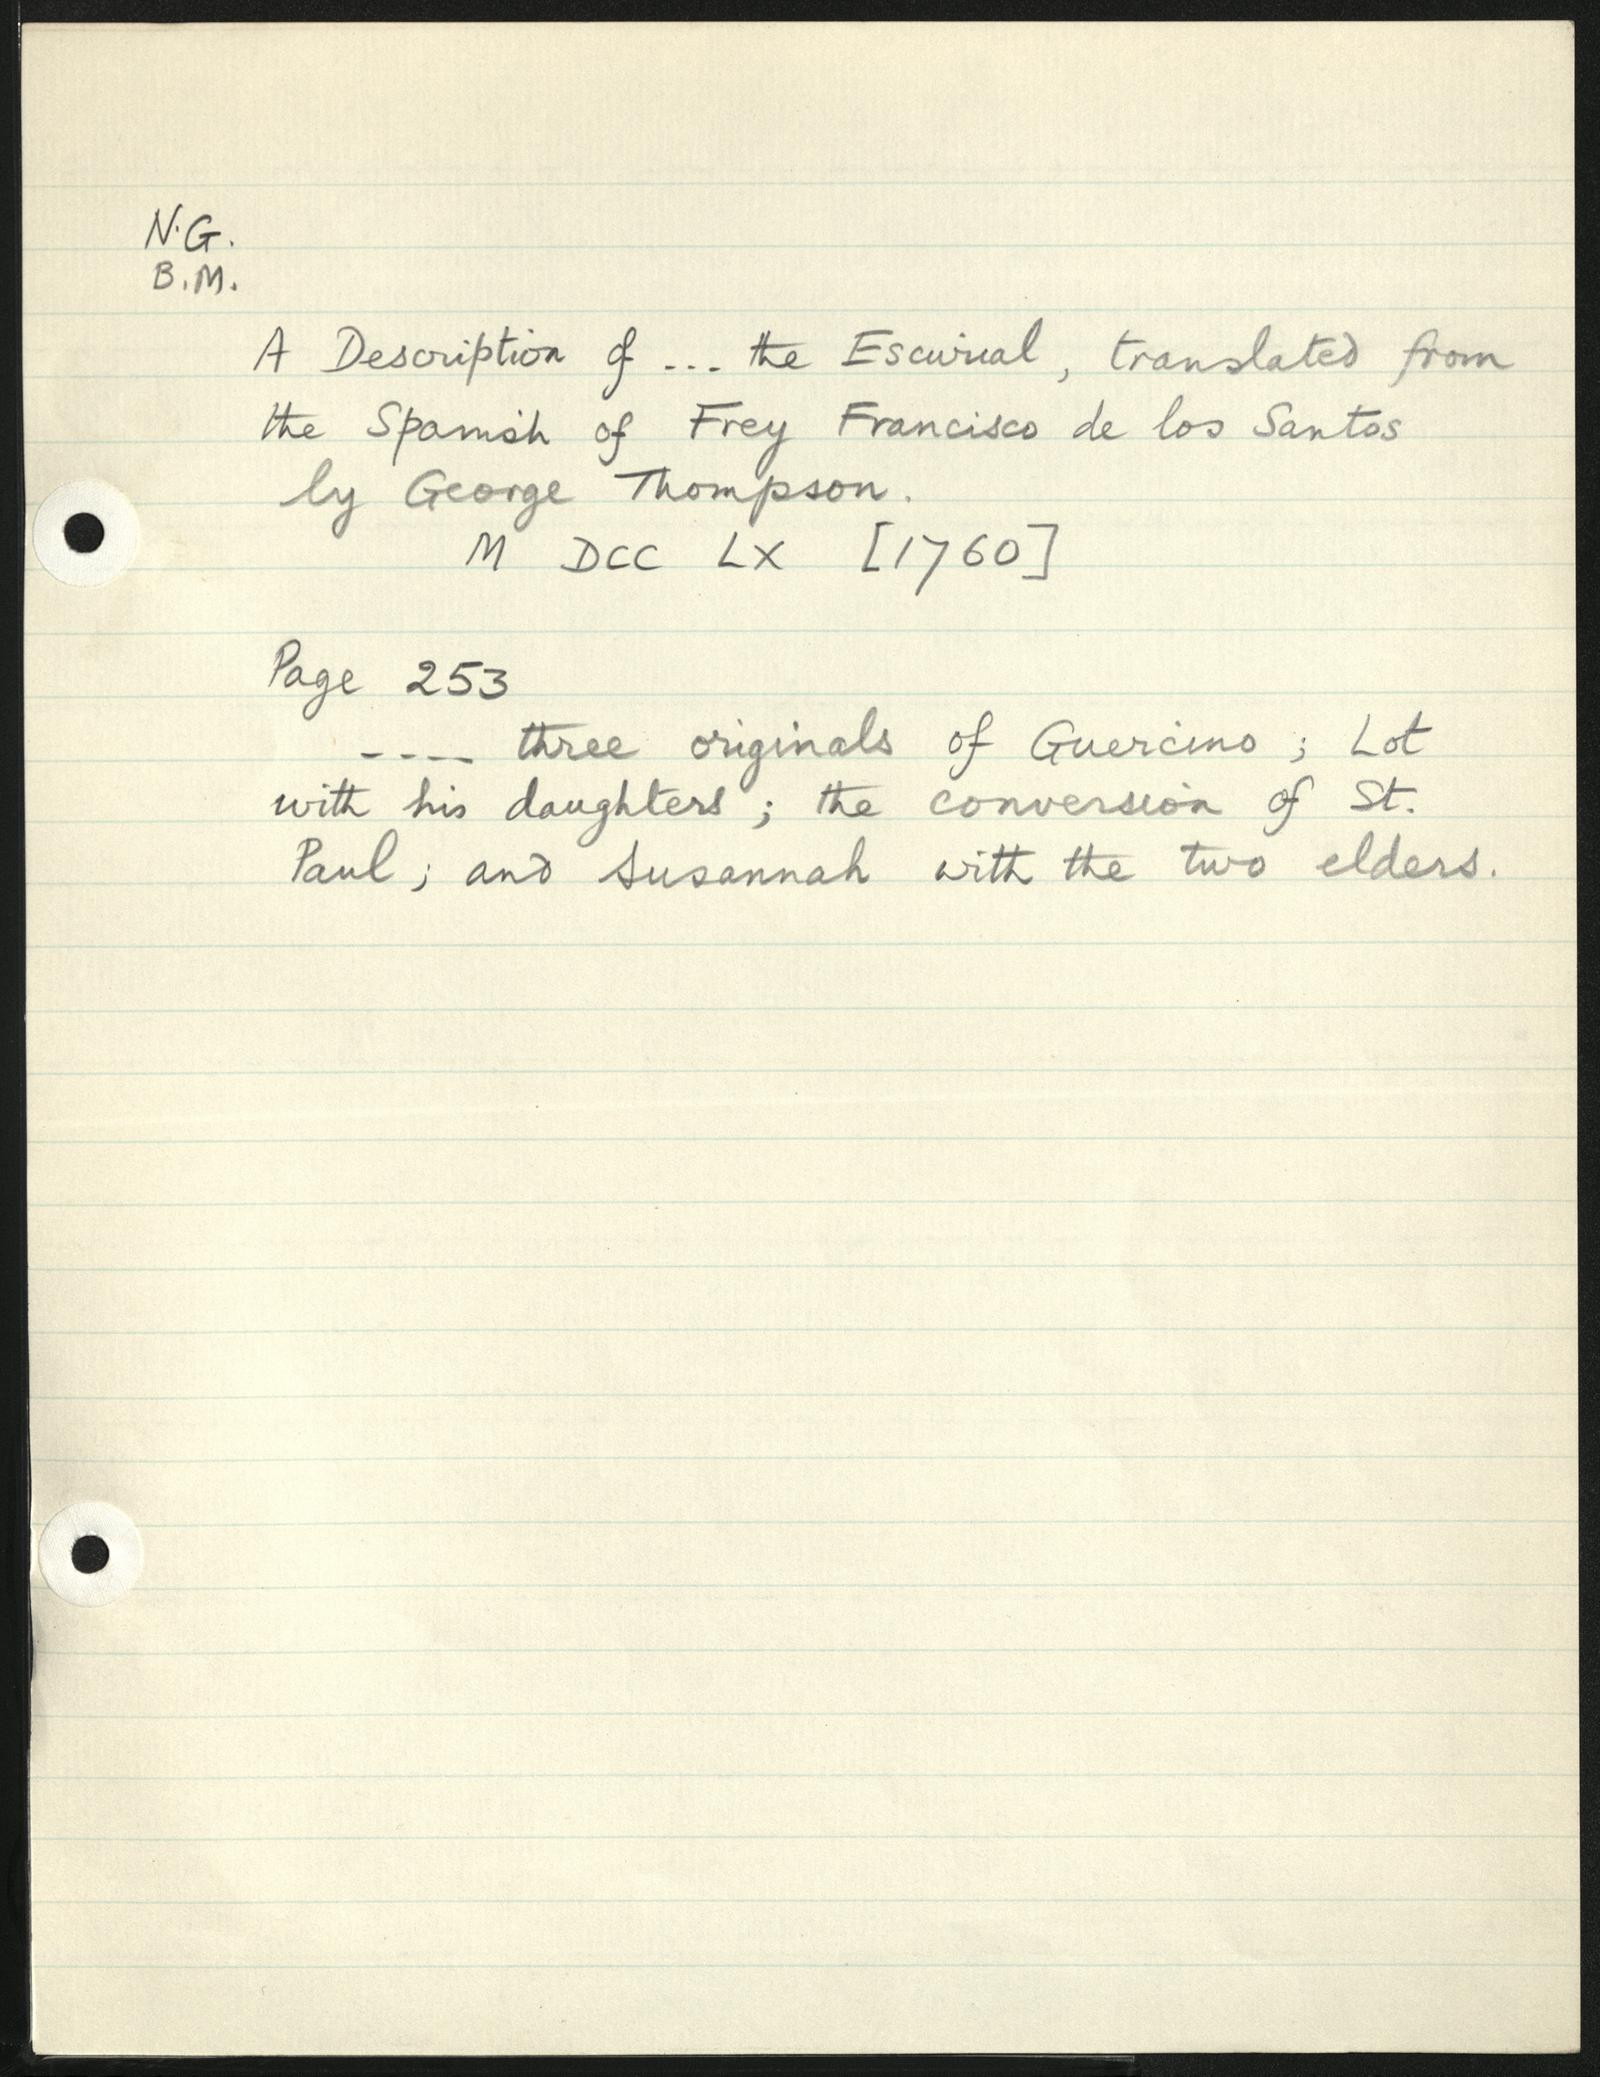 N.G.
B.M.
A Description of ... the Escurial, translated from
the Spanish of Frey Francisco de los Santos
by George Thompson.
M DCC LX [1760]
Page 253
---- three originals of Guercino; Lot
with his daughters; the conversion of St.
Paul; and Susannah with the two elders.